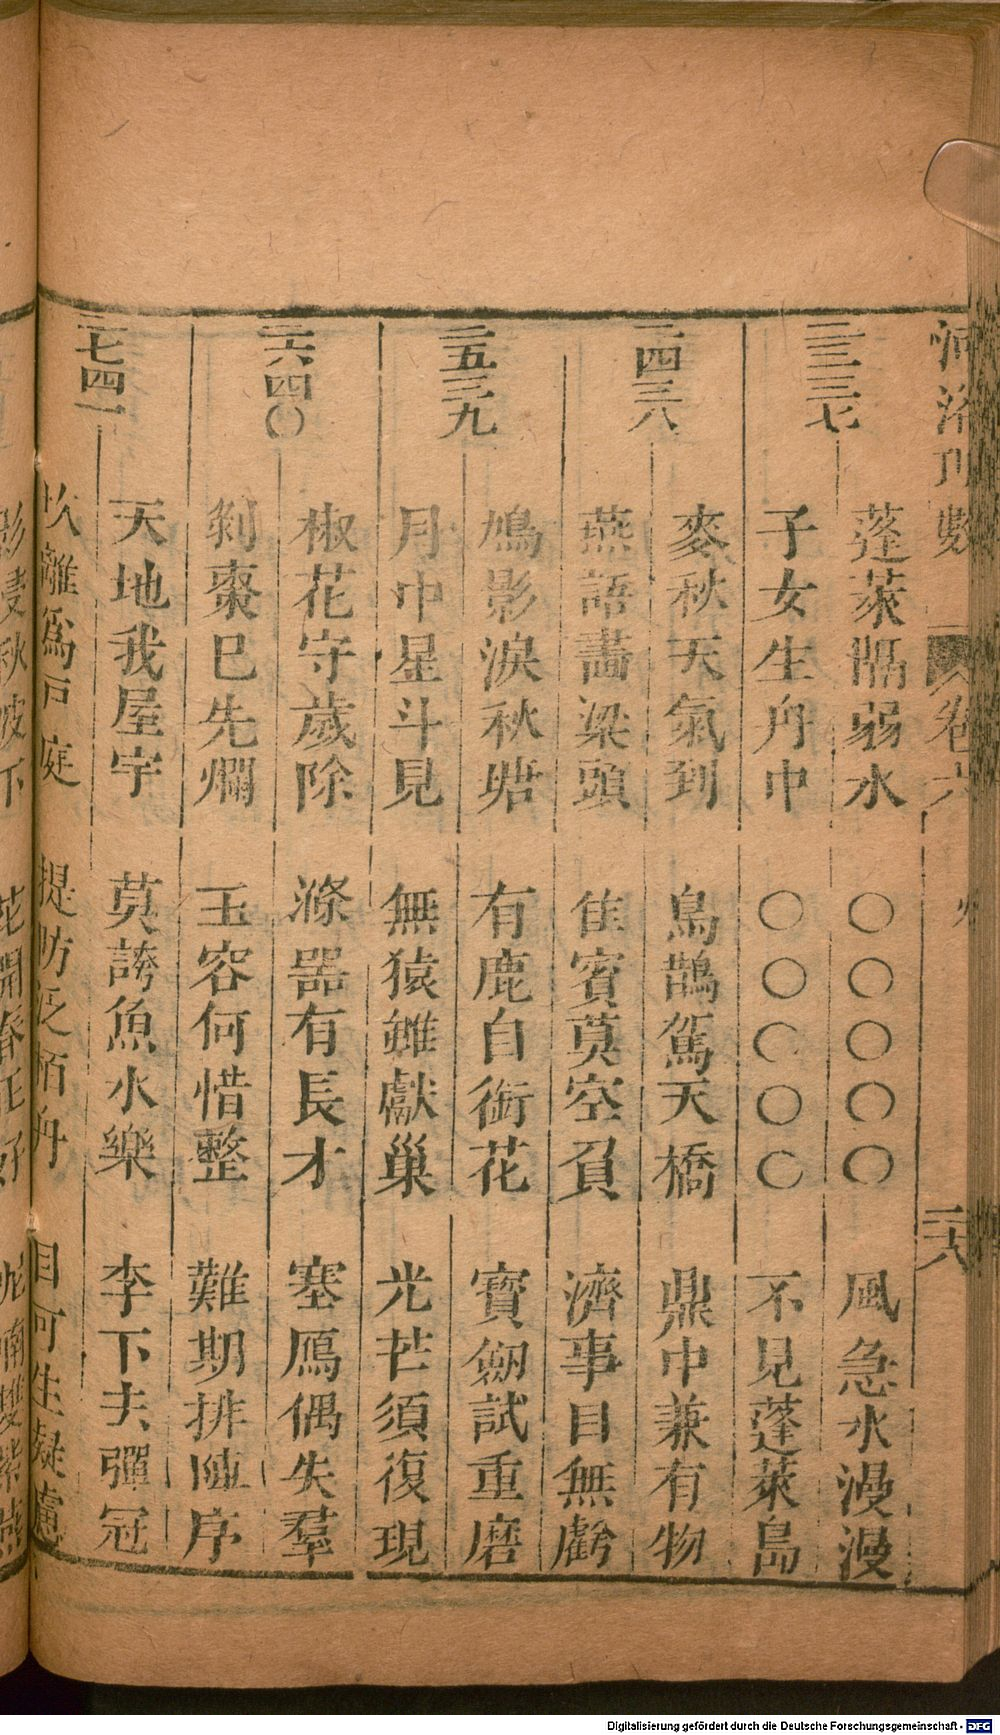 河洛理數 卷六 二六
二三三七
蓬萊隔弱水 ○○○○○ 風急水漫漫
子女生舟中 ○○○○○ 不見蓬萊島
二四三八
麥秋天氣到 烏鵲駕天橋 鼎中兼有物
燕語畵梁頭 佳賓莫空負 濟事目無虧
二五三九
鳩影淚秋塘 有鹿自銜花 寳劒試重磨
月中星斗見 無猿雖獻巢 光芒須復現
二六四〇
椒花守歲除 滌器有長才 塞鴈偶失羣
剝棗巳先爛 玉容何惜整 難期排陣序
二七四一
天地我屋宇 莫誇魚水樂 李下夫彈冠
坎離爲戸庭 提防泛栢舟 目可生疑慮
Digitalisierung gefördert durch die Deutsche Forschungsgemeinschaft - DFG